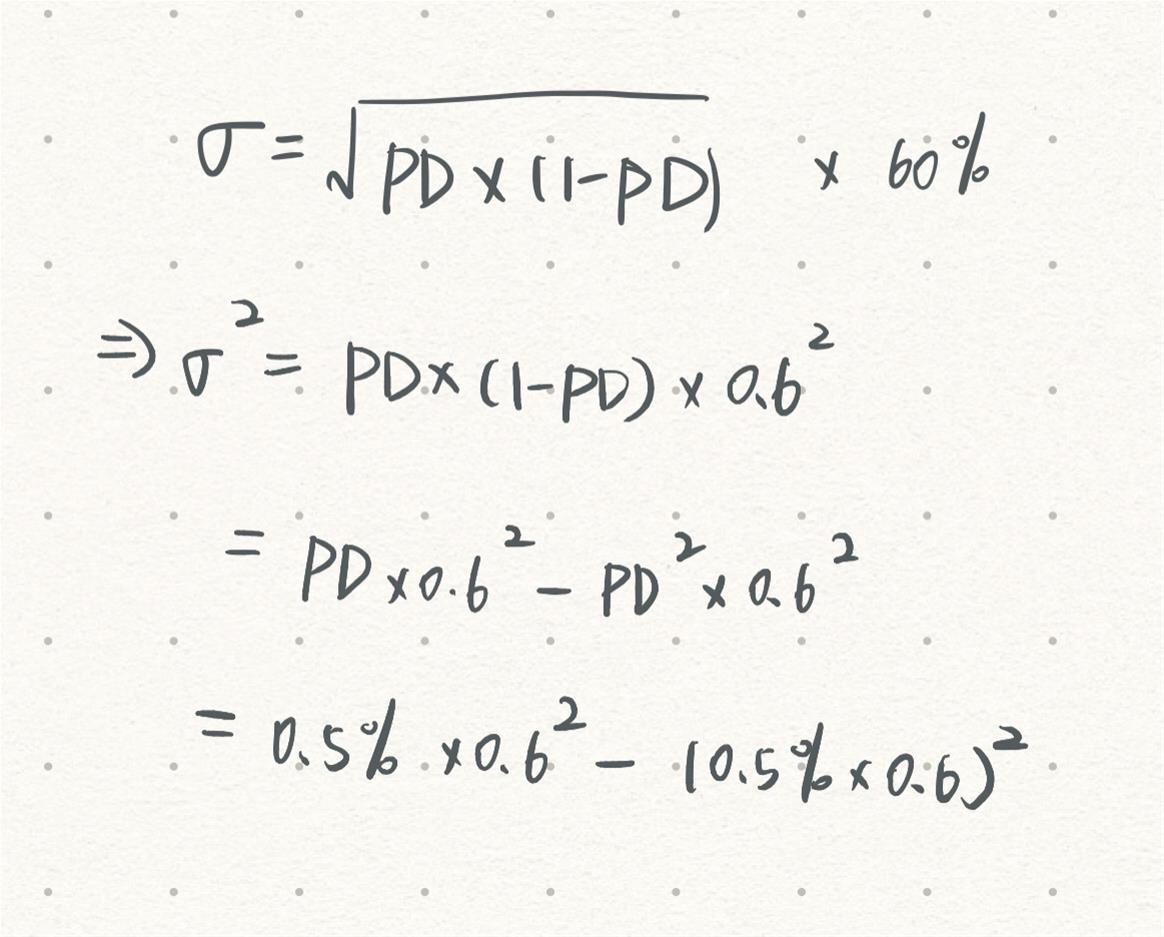 σ = √(PD × (1-PD)) × 60%
⇒ σ² = PD × (1-PD) × 0.6²
= PD × 0.6² - PD² × 0.6²
= 0.5% × 0.6² - (0.5% × 0.6)²